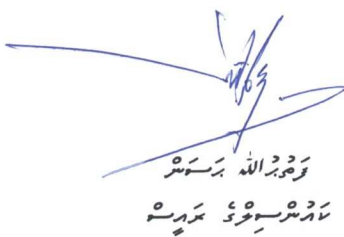 ފަތުޙުﷲ ޙަސަން
ކައުންސިލްގެ ރައީސް